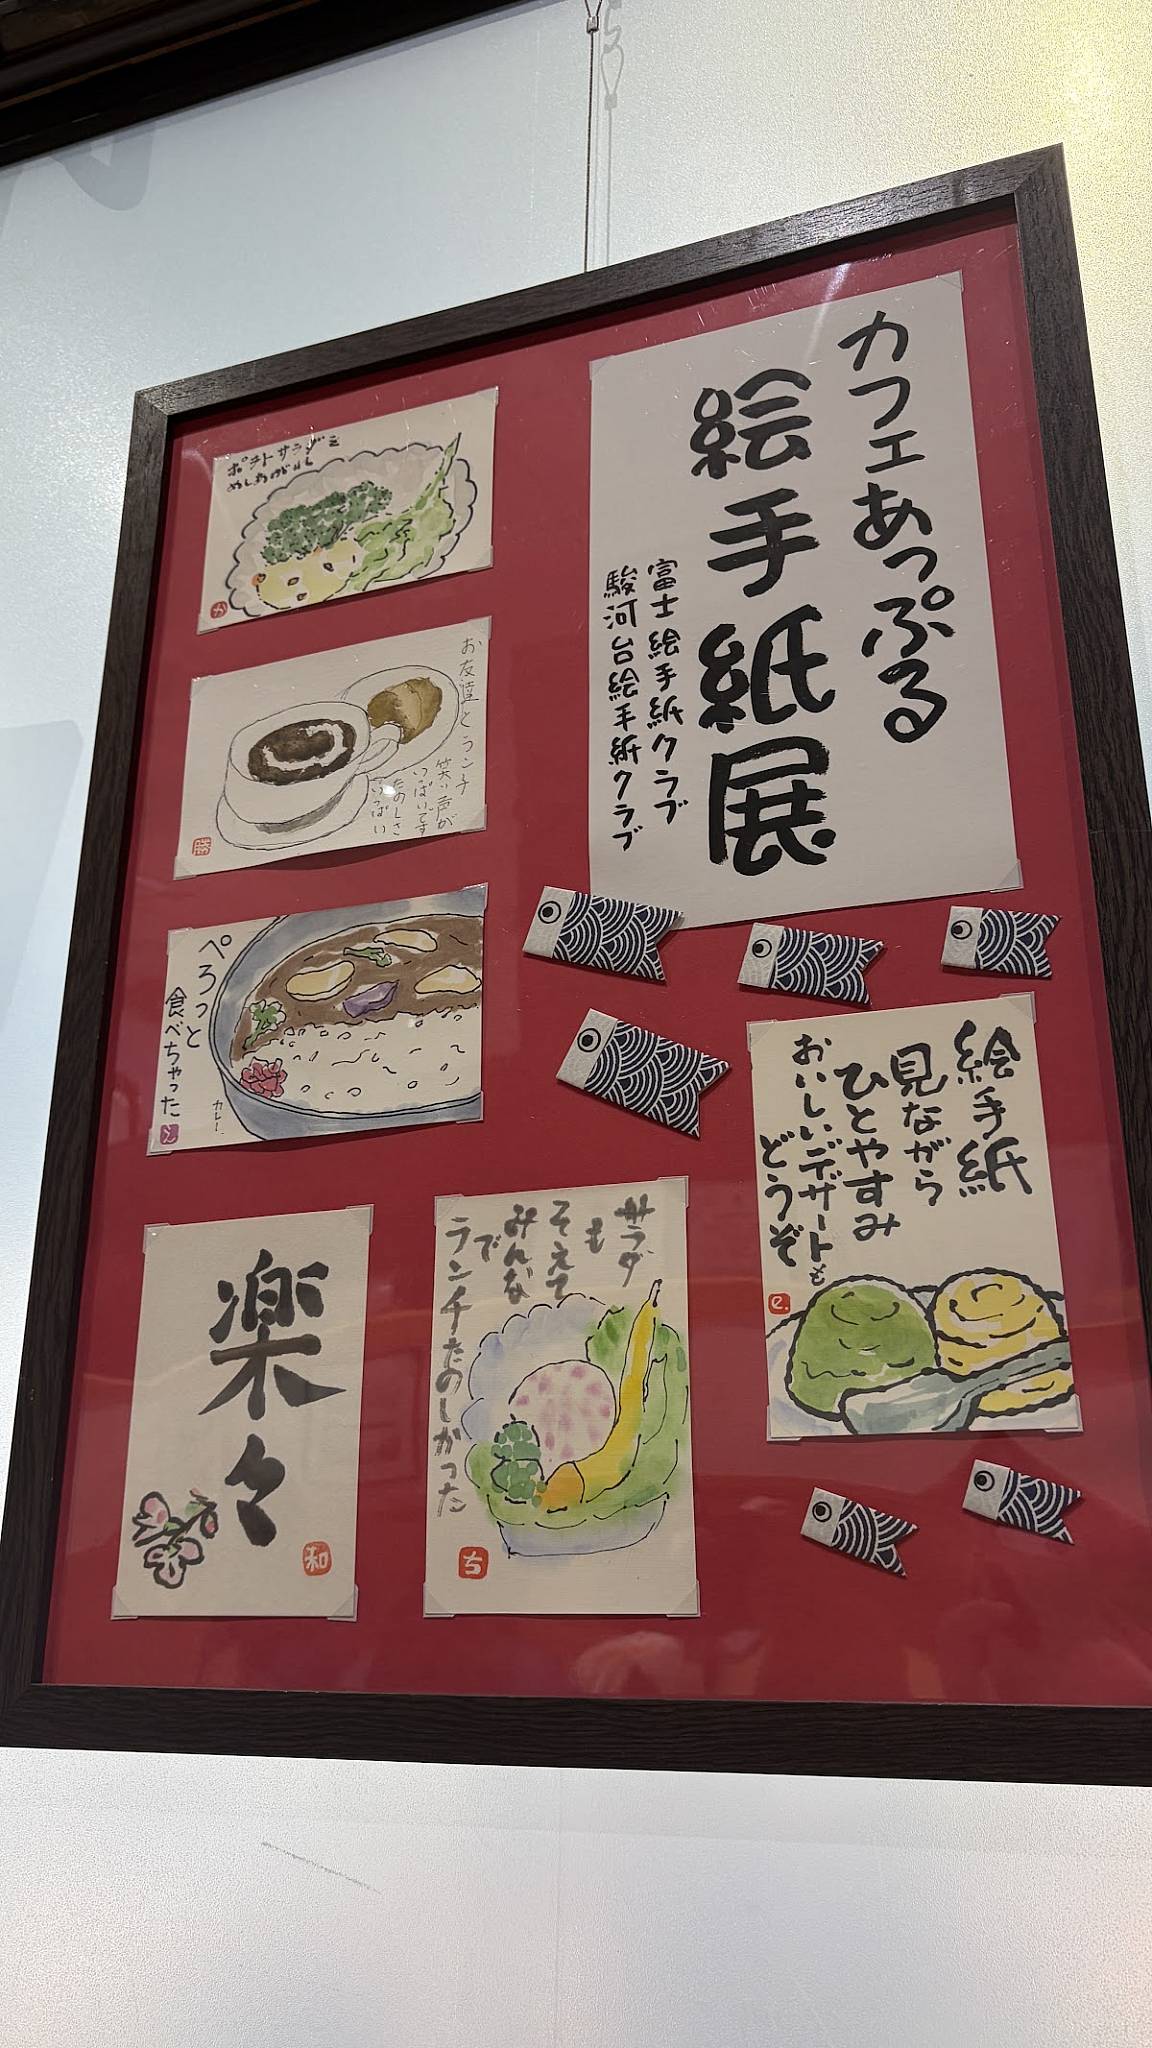 カフェあっぷる
絵手紙展
富士絵手紙クラブ
駿河台絵手紙クラブ
ポテトサラダを
めしあがれ
か
お友達とランチ
笑い声が
いっぱいです
たのしさ
いっぱい
勝
ぺろっと
食べちゃった
カレー
絵手紙
見ながら
ひとやすみ
おいしいデザートも
どうぞ
e.
サラダ
も
そえて
みんな
で
ランチたのしかった
ち
楽々
和